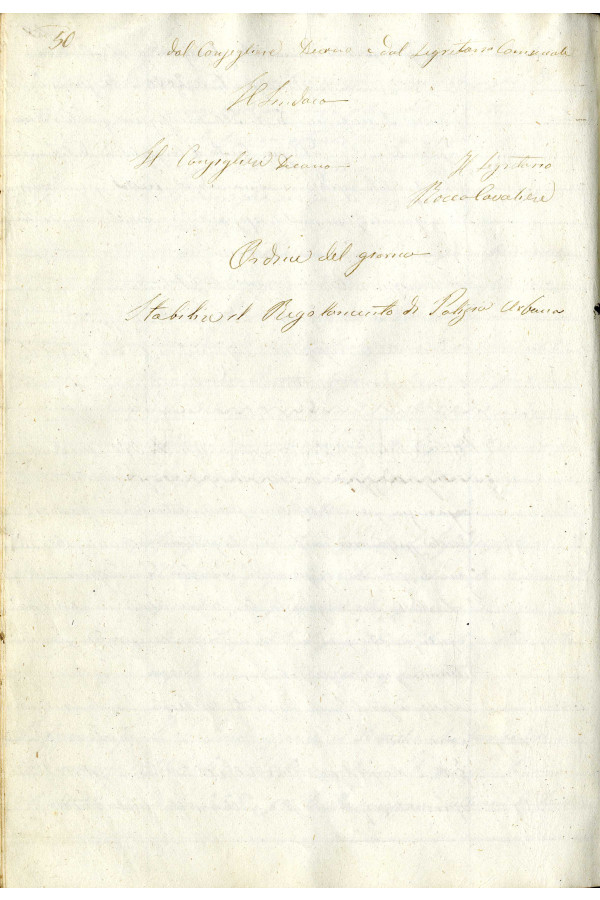 50
dal Consigliere Decano e dal Segretario Comunale
Il Sindaco
Il Consigliere Decano
Il Segretario
Rocco Cavaliere
Ordine del giorno
Stabilire il Regolamento di Polizia Urbana